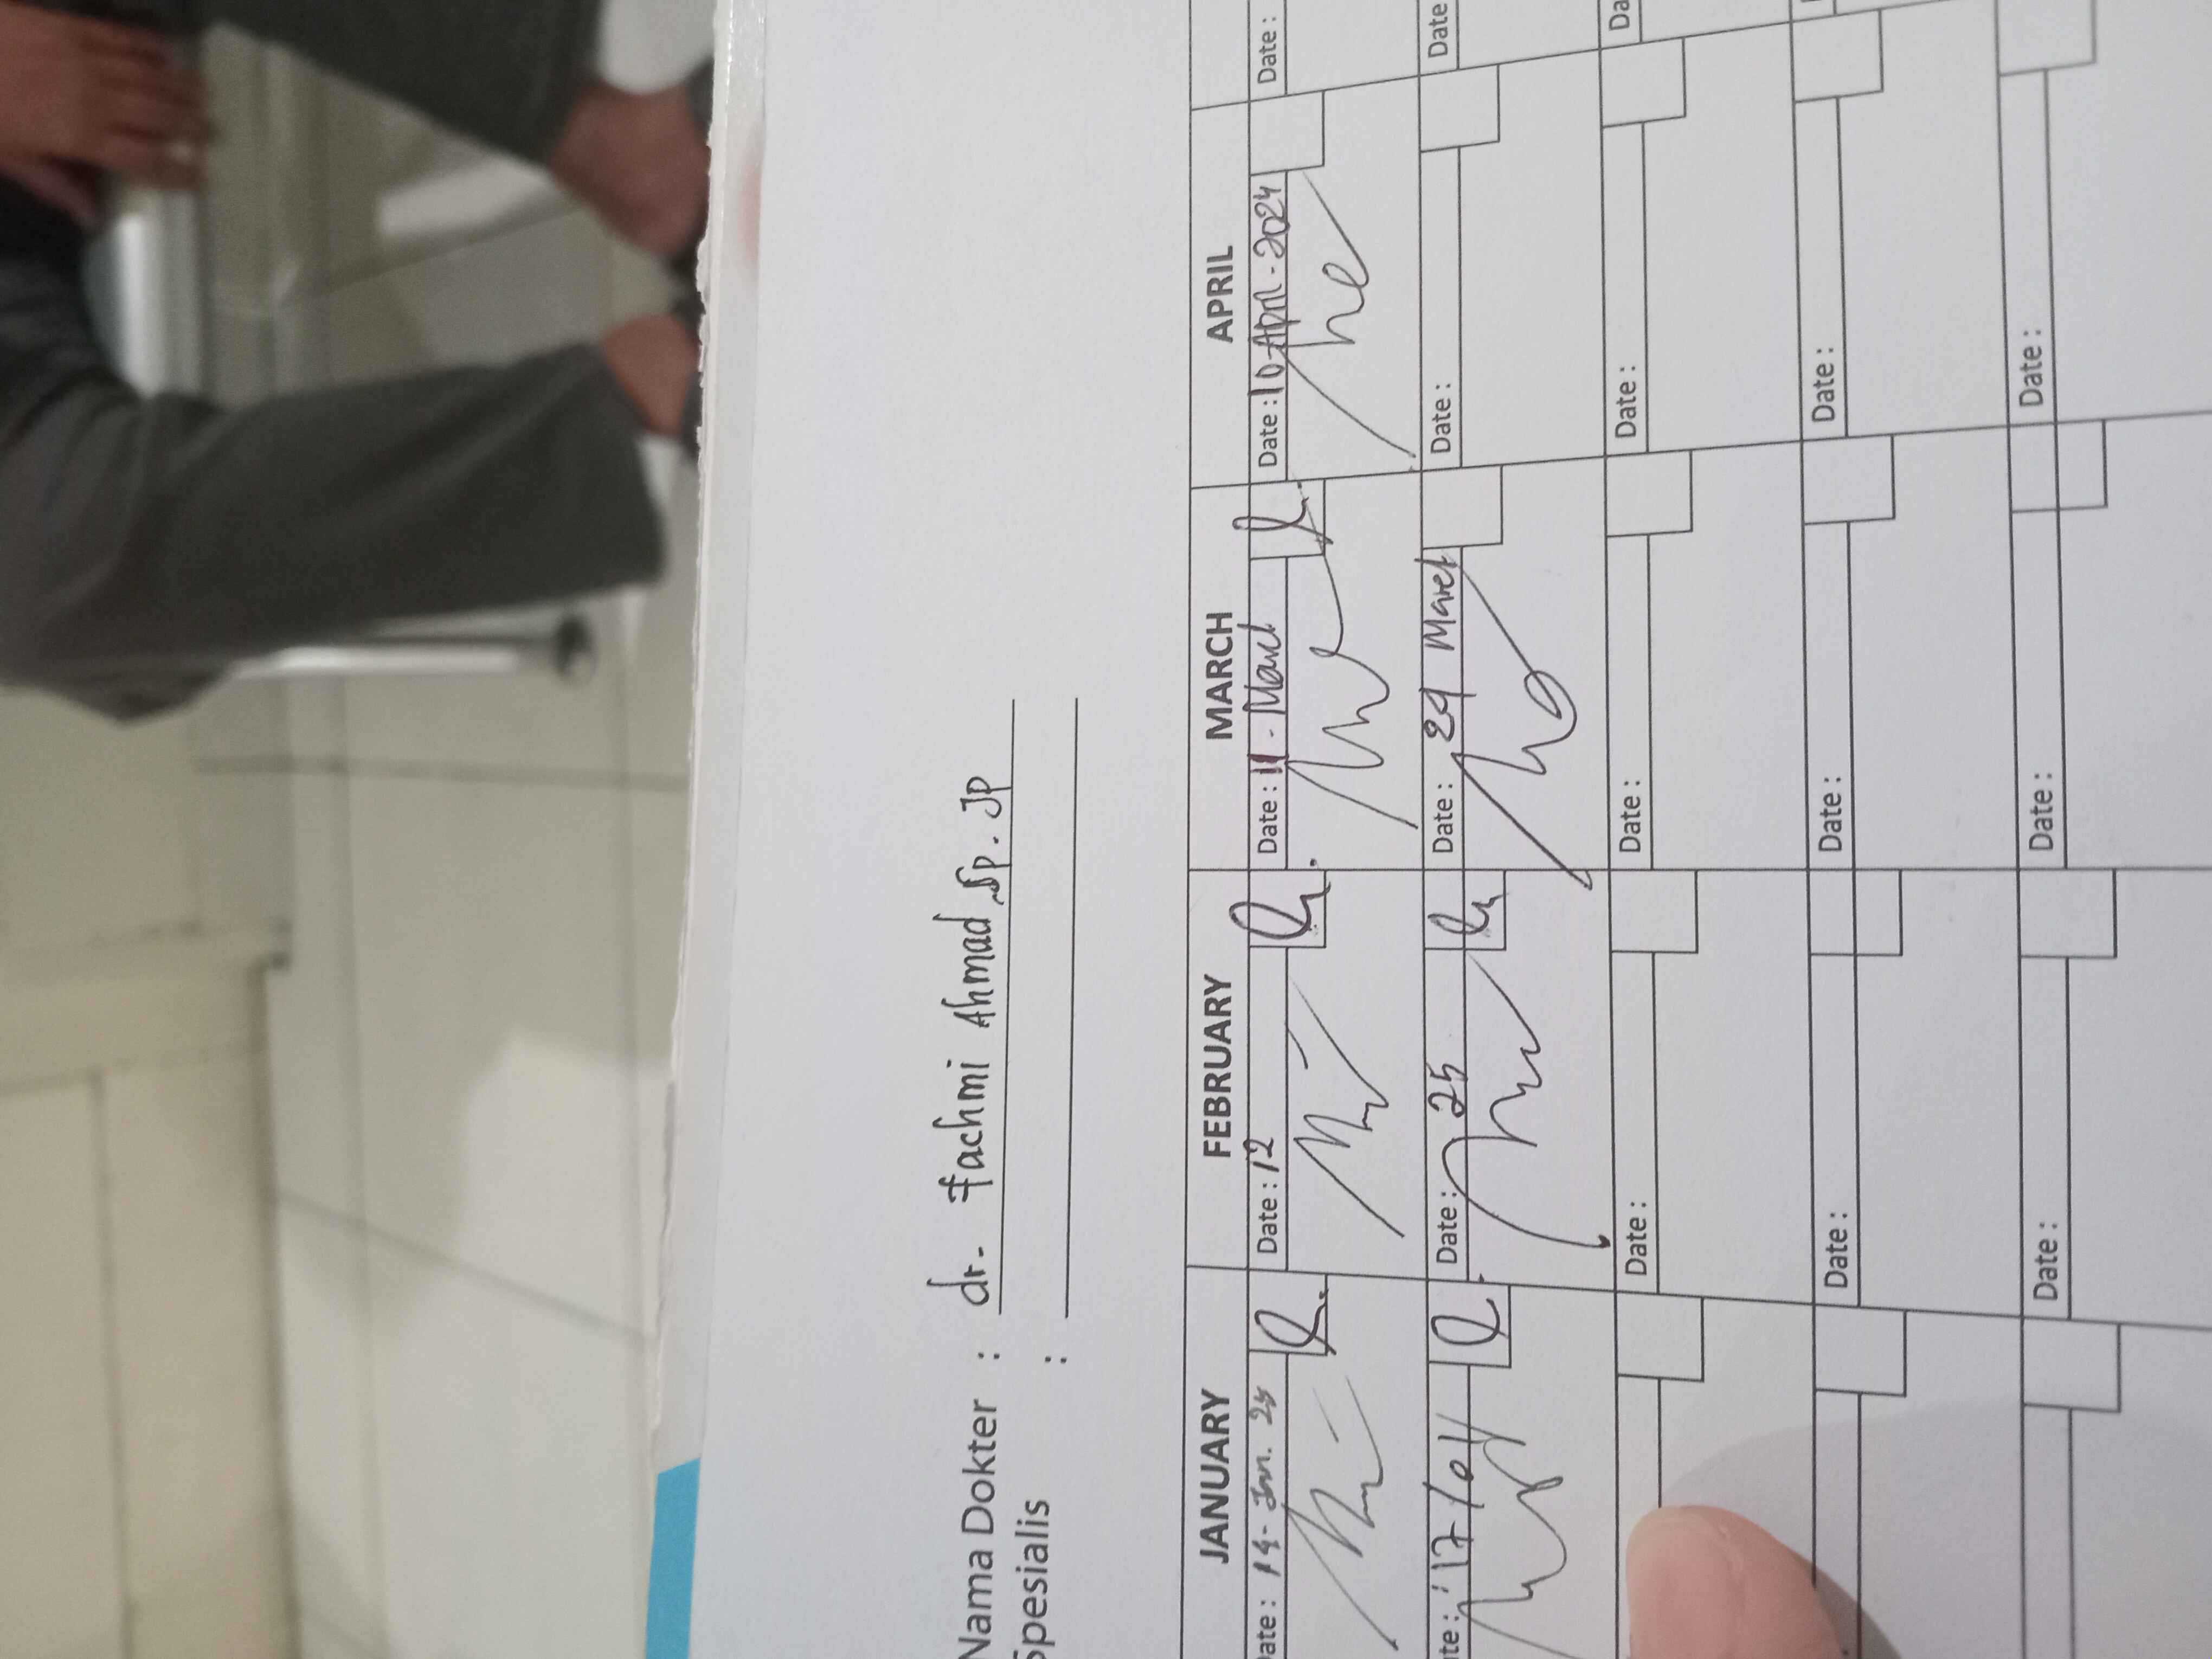 Nama Dokter : dr. Fachmi Ahmad, Sp. JP
Spesialis :
JANUARY FEBRUARY MARCH APRIL
Date : 14- Jan. Date : 12 Date : 11 - Date : 10-April-2024 Date :
17/01 Date : 25 Date : 29 Date : Date
Date : Date : Date : Da
Date : Date : Date :
Date : Date : Date :